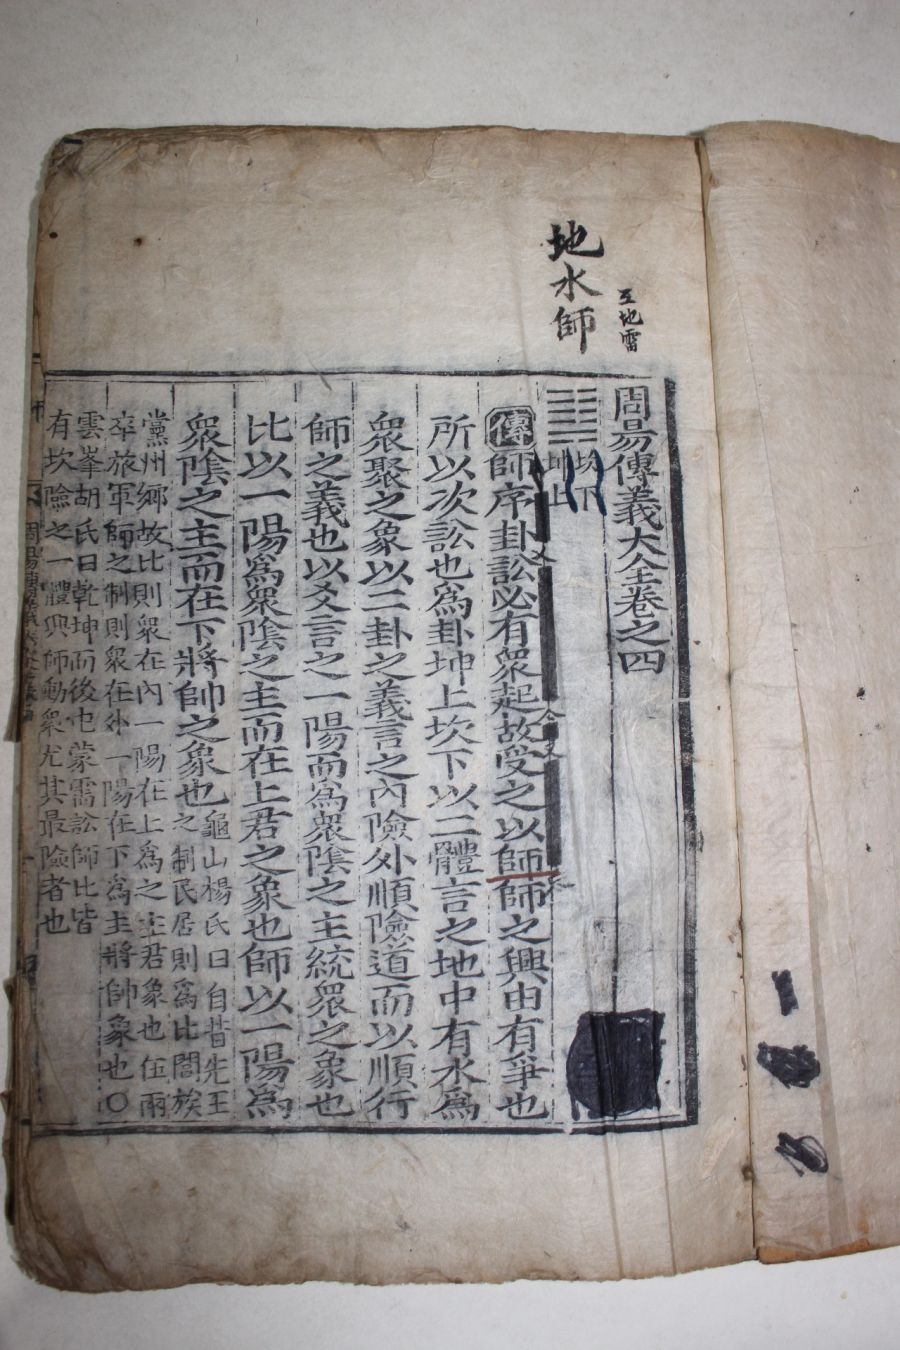 地水師
互地雷
周易傳義大全卷之四
坎下
坤上
傳師序卦訟必有衆起故受之以師師之興由有爭也
所以次訟也爲卦坤上坎下以二體言之地中有水爲
衆聚之象以二卦之義言之內險外順險道而以順行
師之義也以爻言之一陽而爲衆陰之主統衆之象也
比以一陽爲衆陰之主而在上君之象也師以一陽爲
衆陰之主而在下將帥之象也
龜山楊氏曰自昔先王
之制民居則爲比閭族
黨州鄉故比則衆在內一陽在上爲之主君象也伍兩
卒旅軍師之制則衆在外一陽在下爲主將帥象也○
雲峯胡氏曰乾坤而後屯蒙需訟師比皆
有坎險之一體興師動衆尤其最險者也